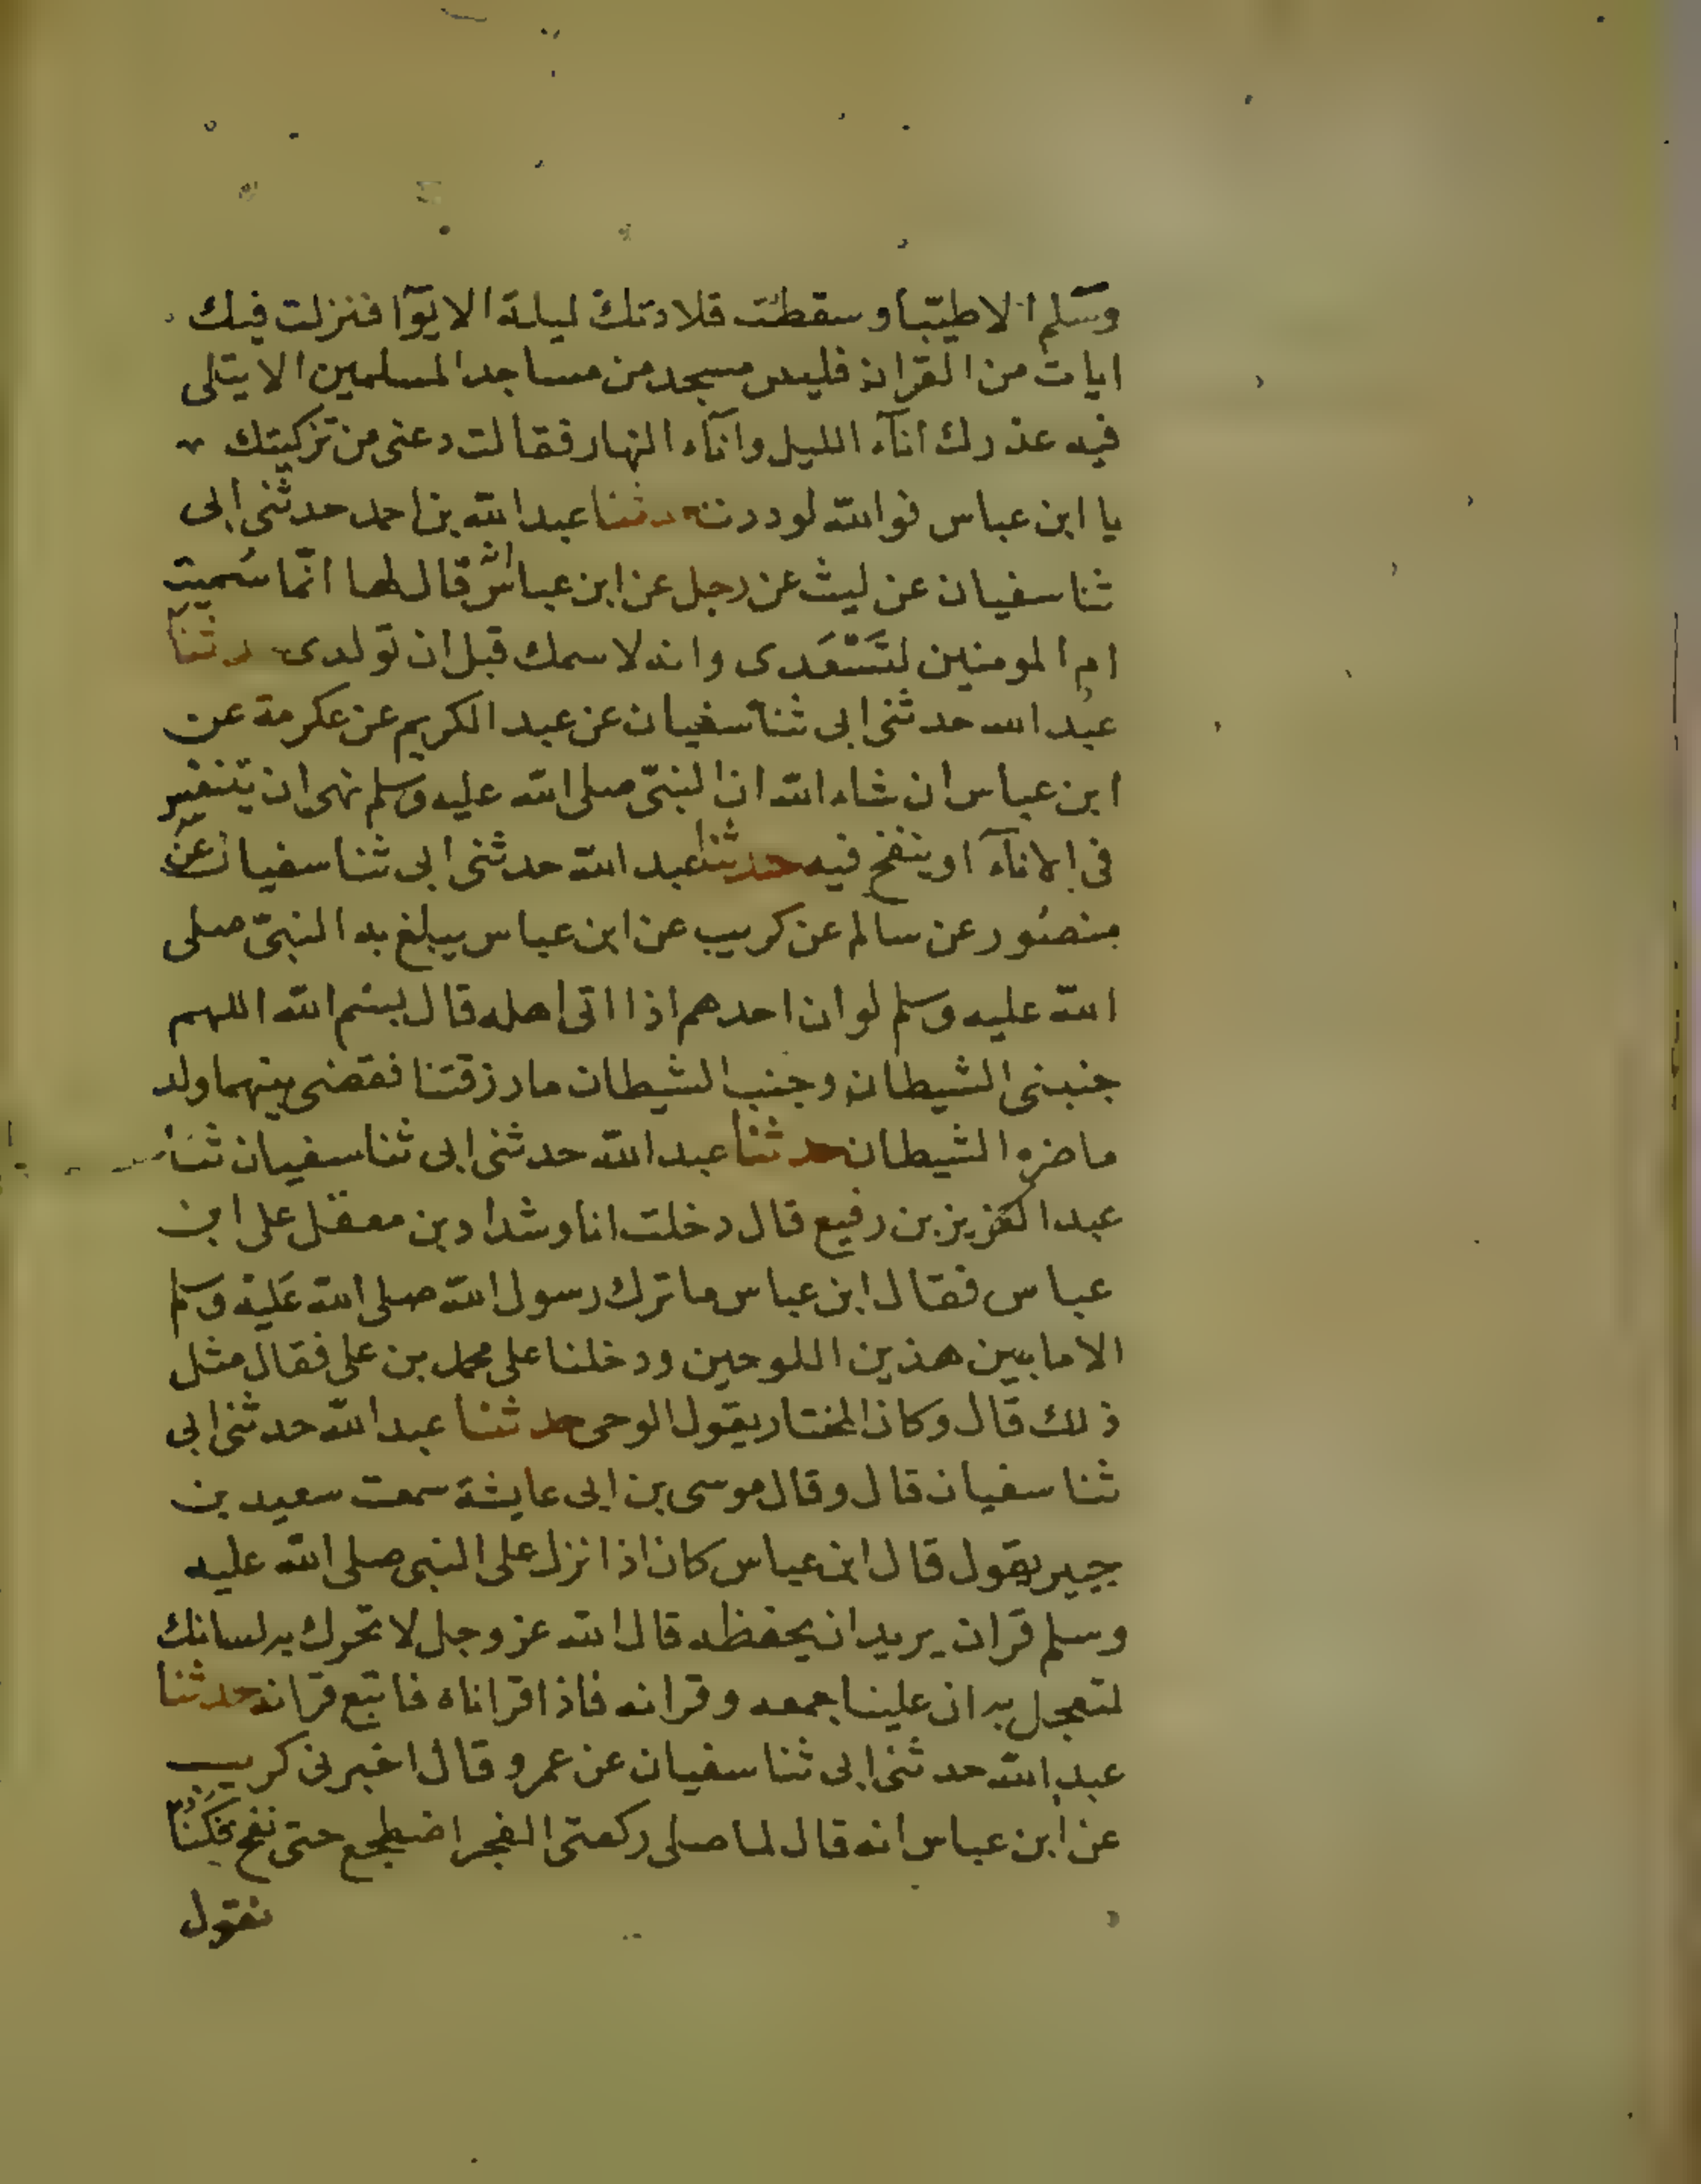 وسلم الا طيبا وسقطت قلادتك ليلة الابوآ فنزلت فيك
ايات من القران فليس مسجد من مساجد المسلمين الا يتلى
فيه عذرك انآء الليل وانآء النهار فقالت دعنى من تزكيتك
يا ابن عباس فوالله لوددت حدثنا عبد الله بن احمد حدثنى ابى
ثنا سفيان عن ليث عن رجل عن ابن عباس قال لها انما سُميت
ام المومنين لتَسْعَدى وانه لاسمك قبل ان تولدى حدثنا
عبد الله حدثنى ابى ثنا سفيان عن عبد الكريم عن عكرمة عن
ابن عباس ان شاء الله ان النبىّ صلى الله عليه وسلم نهى ان يتنفس
فى الانآء او ينفخ فيه حدثنا عبد الله حدثنى ابى ثنا سفيان عن
منصُور عن سالم عن كريب عن ابن عباس يبلغ به النبىّ صلى
الله عليه وسلم لو ان احدهم اذا اتى اهله قال بسْم الله اللهم
جنبنى الشيطان وجنب الشيطان ما رزقتنا فقضى بينهما ولد
ما ضره الشيطان حدثنا عبد الله حدثنى ابى ثنا سفيان ثنا
عبد العزيز بن رفيع قال دخلت انا وشداد بن معقل على ابن
عباس فقال ابن عباس ما ترك رسول الله صلى الله عليه وسلم
الا ما بين هذين اللوحين ودخلنا على محمد بن على فقال مثل
ذلك قال وكان المختار يقول الوحى حدثنا عبد الله حدثنى ابى
ثنا سفيان قال وقال موسى بن ابى عايشة سمعت سعيد بن
جبير يقول قال ابن عباس كان اذا نزل على النبى صلى الله عليه
وسلم قران يريد ان يحفظه قال الله عز وجل لا تحرك به لسانك
لتعجل به ان علينا جمعه وقرانه فاذا قراناه فاتبع قرانه حدثنا
عبد الله حدثنى ابى ثنا سفيان عن عمرو قال اخبرنى كريب
عن ابن عباس انه قال لما صلى ركعتى الفجر اضطجع حتى نفخ فكُنّا
نقول